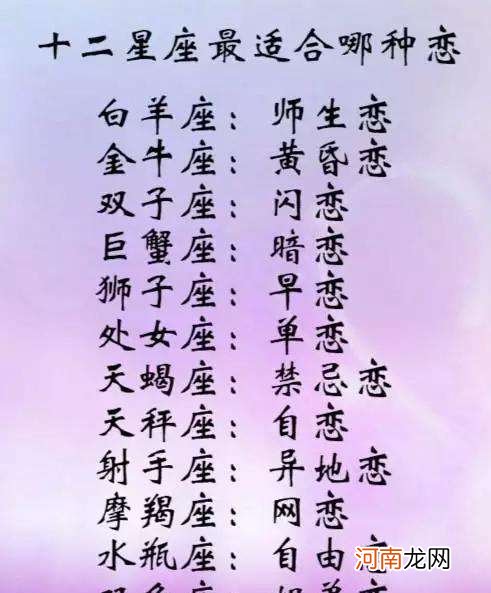 十二星座最适合哪种恋
白羊座：师生恋
金牛座：黄昏恋
双子座：闪恋
巨蟹座：暗恋
狮子座：早恋
处女座：单恋
天蝎座：禁忌恋
天秤座：自恋
射手座：异地恋
摩羯座：网恋
水瓶座：自由恋
河南龙网